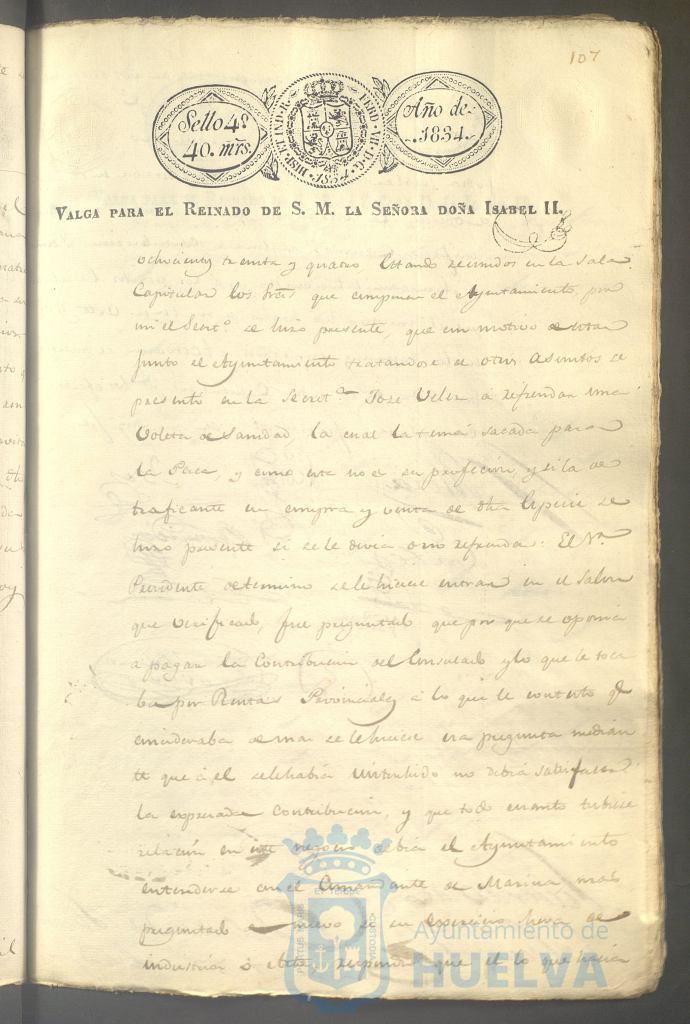 107
Sello 4º
40. mrs.
HISP. ET IND. R. FERD. VII. D. G.
1834
Año de
1834.
VALGA PARA EL REINADO DE S. M. LA SEÑORA DOÑA ISABEL II.
ochocientos treinta y quatro Estando reunidos en la Sala
Capitular los Sres que componen el Ayuntamiento, por
mi el Secretº se hizo presente, que con motivo de estar
junto el Ayuntamiento tratandose de otros asuntos se
presentó en la Secretª Jose Velez á refrendar una
Voleta de Sanidad la cual la tenia sacada para
la Pesca, y como este no es su profecion, y si la de
traficante en compra y venta de dha Especie se
hizo presente si se le devia o no refrendar: El Sr
Presidente determino se le hiciese entrar en el Salon
que verificado, fue preguntado que por que se oponia
a pagar la Contribucion del Consulado y lo que le toca
ba por Rentas Provinciales á lo que le contesto qe
consideraba de mas se le hiciese esa pregunta median
te que á el se le habia no debia satisfacer
la expresada Contribucion, y que todo cuanto tubiese
relacion en este negocio debia el Ayuntamiento
entenderse con el Comandante de Marina mas
preguntado de nuevo si su exercicio hera de
industria ó respondio que el lo que hacia
PORTUS MARIS
ET TERRÆ
CUSTODIA
Ayuntamiento de
HUELVA